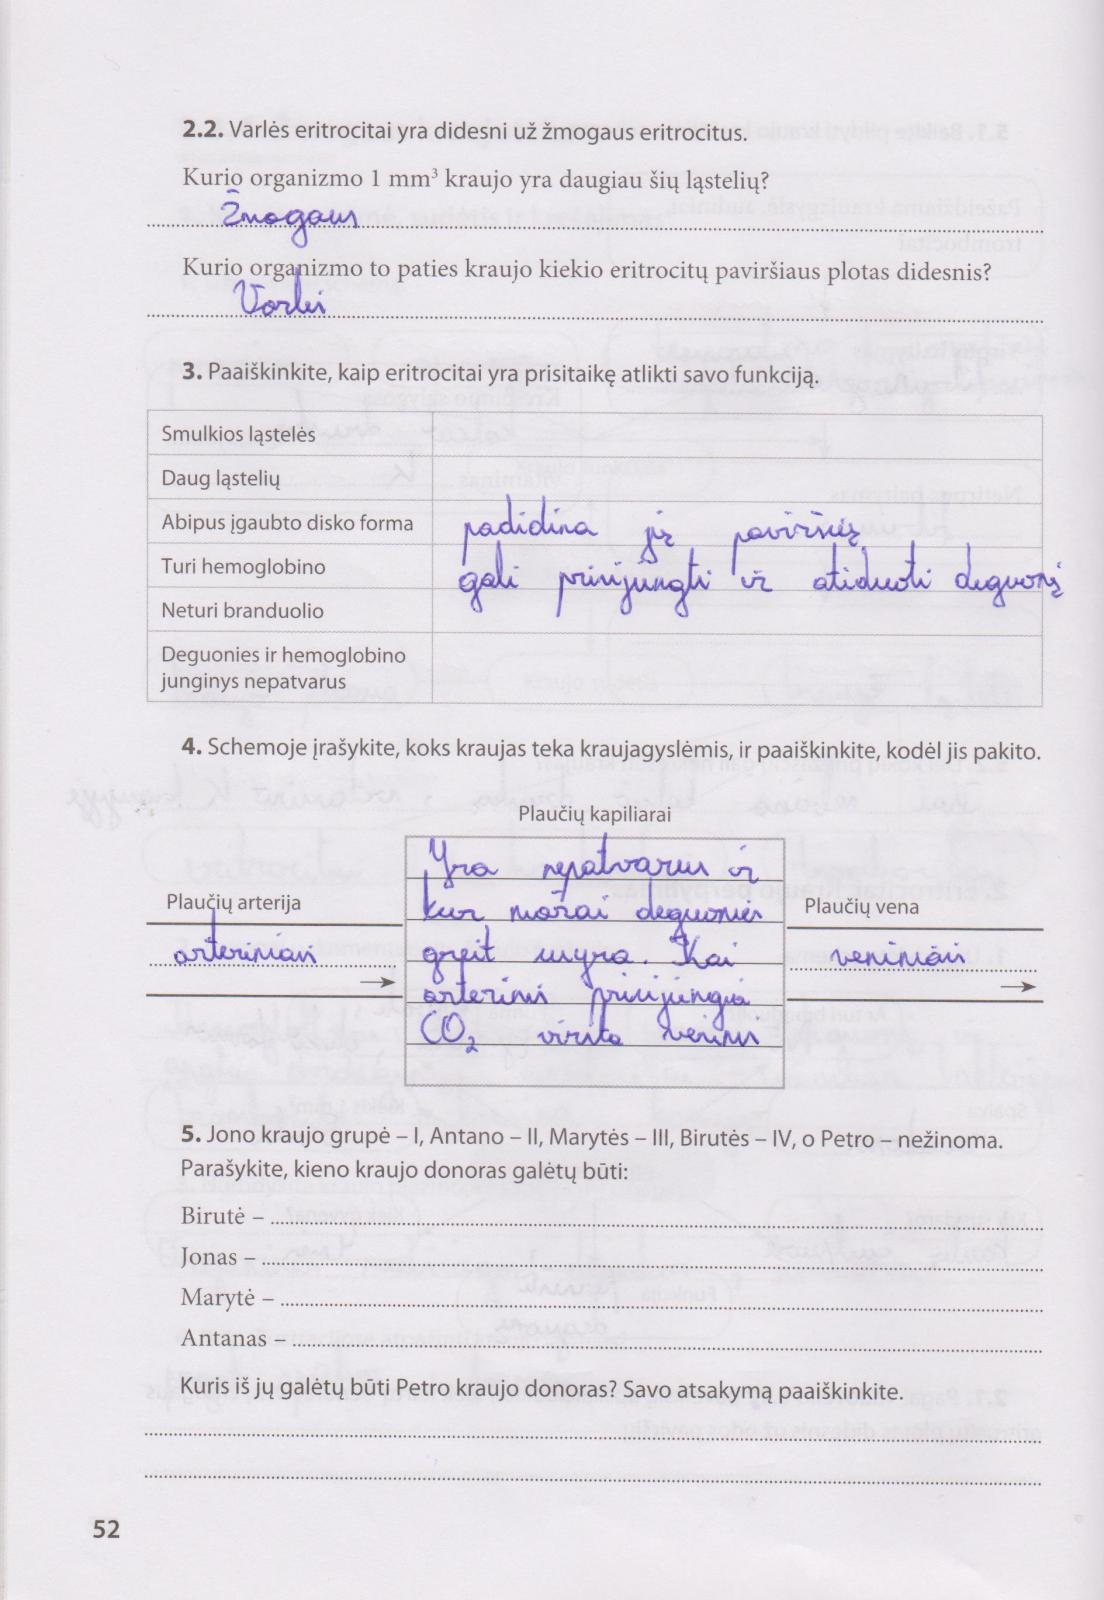 2.2. Varlės eritrocitai yra didesni už žmogaus eritrocitus.
Kurio organizmo 1 mm³ kraujo yra daugiau šių ląstelių?
Žmogaus
Kurio organizmo to paties kraujo kiekio eritrocitų paviršiaus plotas didesnis?
Varlės
3. Paaiškinkite, kaip eritrocitai yra prisitaikę atlikti savo funkciją.
Smulkios ląstelės
Daug ląstelių
Abipus įgaubto disko forma padidina jų paviršių
Turi hemoglobino gali prisijungti ir atiduoti deguonį
Neturi branduolio
Deguonies ir hemoglobino
junginys nepatvarus
4. Schemoje įrašykite, koks kraujas teka kraujagyslėmis, ir paaiškinkite, kodėl jis pakito.
Plaučių kapiliarai
Plaučių arterija
arterinian
Yra nepatvarus ir
kur mažai deguonies
greit suyra. Kai
arterinis prisijungia
CO₂ virsta venini
Plaučių vena
veninian
5. Jono kraujo grupė – I, Antano – II, Marytės – III, Birutės – IV, o Petro – nežinoma.
Parašykite, kieno kraujo donoras galėtų būti:
Birutė –
Jonas –
Marytė –
Antanas –
Kuris iš jų galėtų būti Petro kraujo donoras? Savo atsakymą paaiškinkite.
52